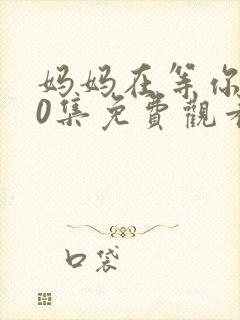 妈妈在等你
0集免费觀
口袋